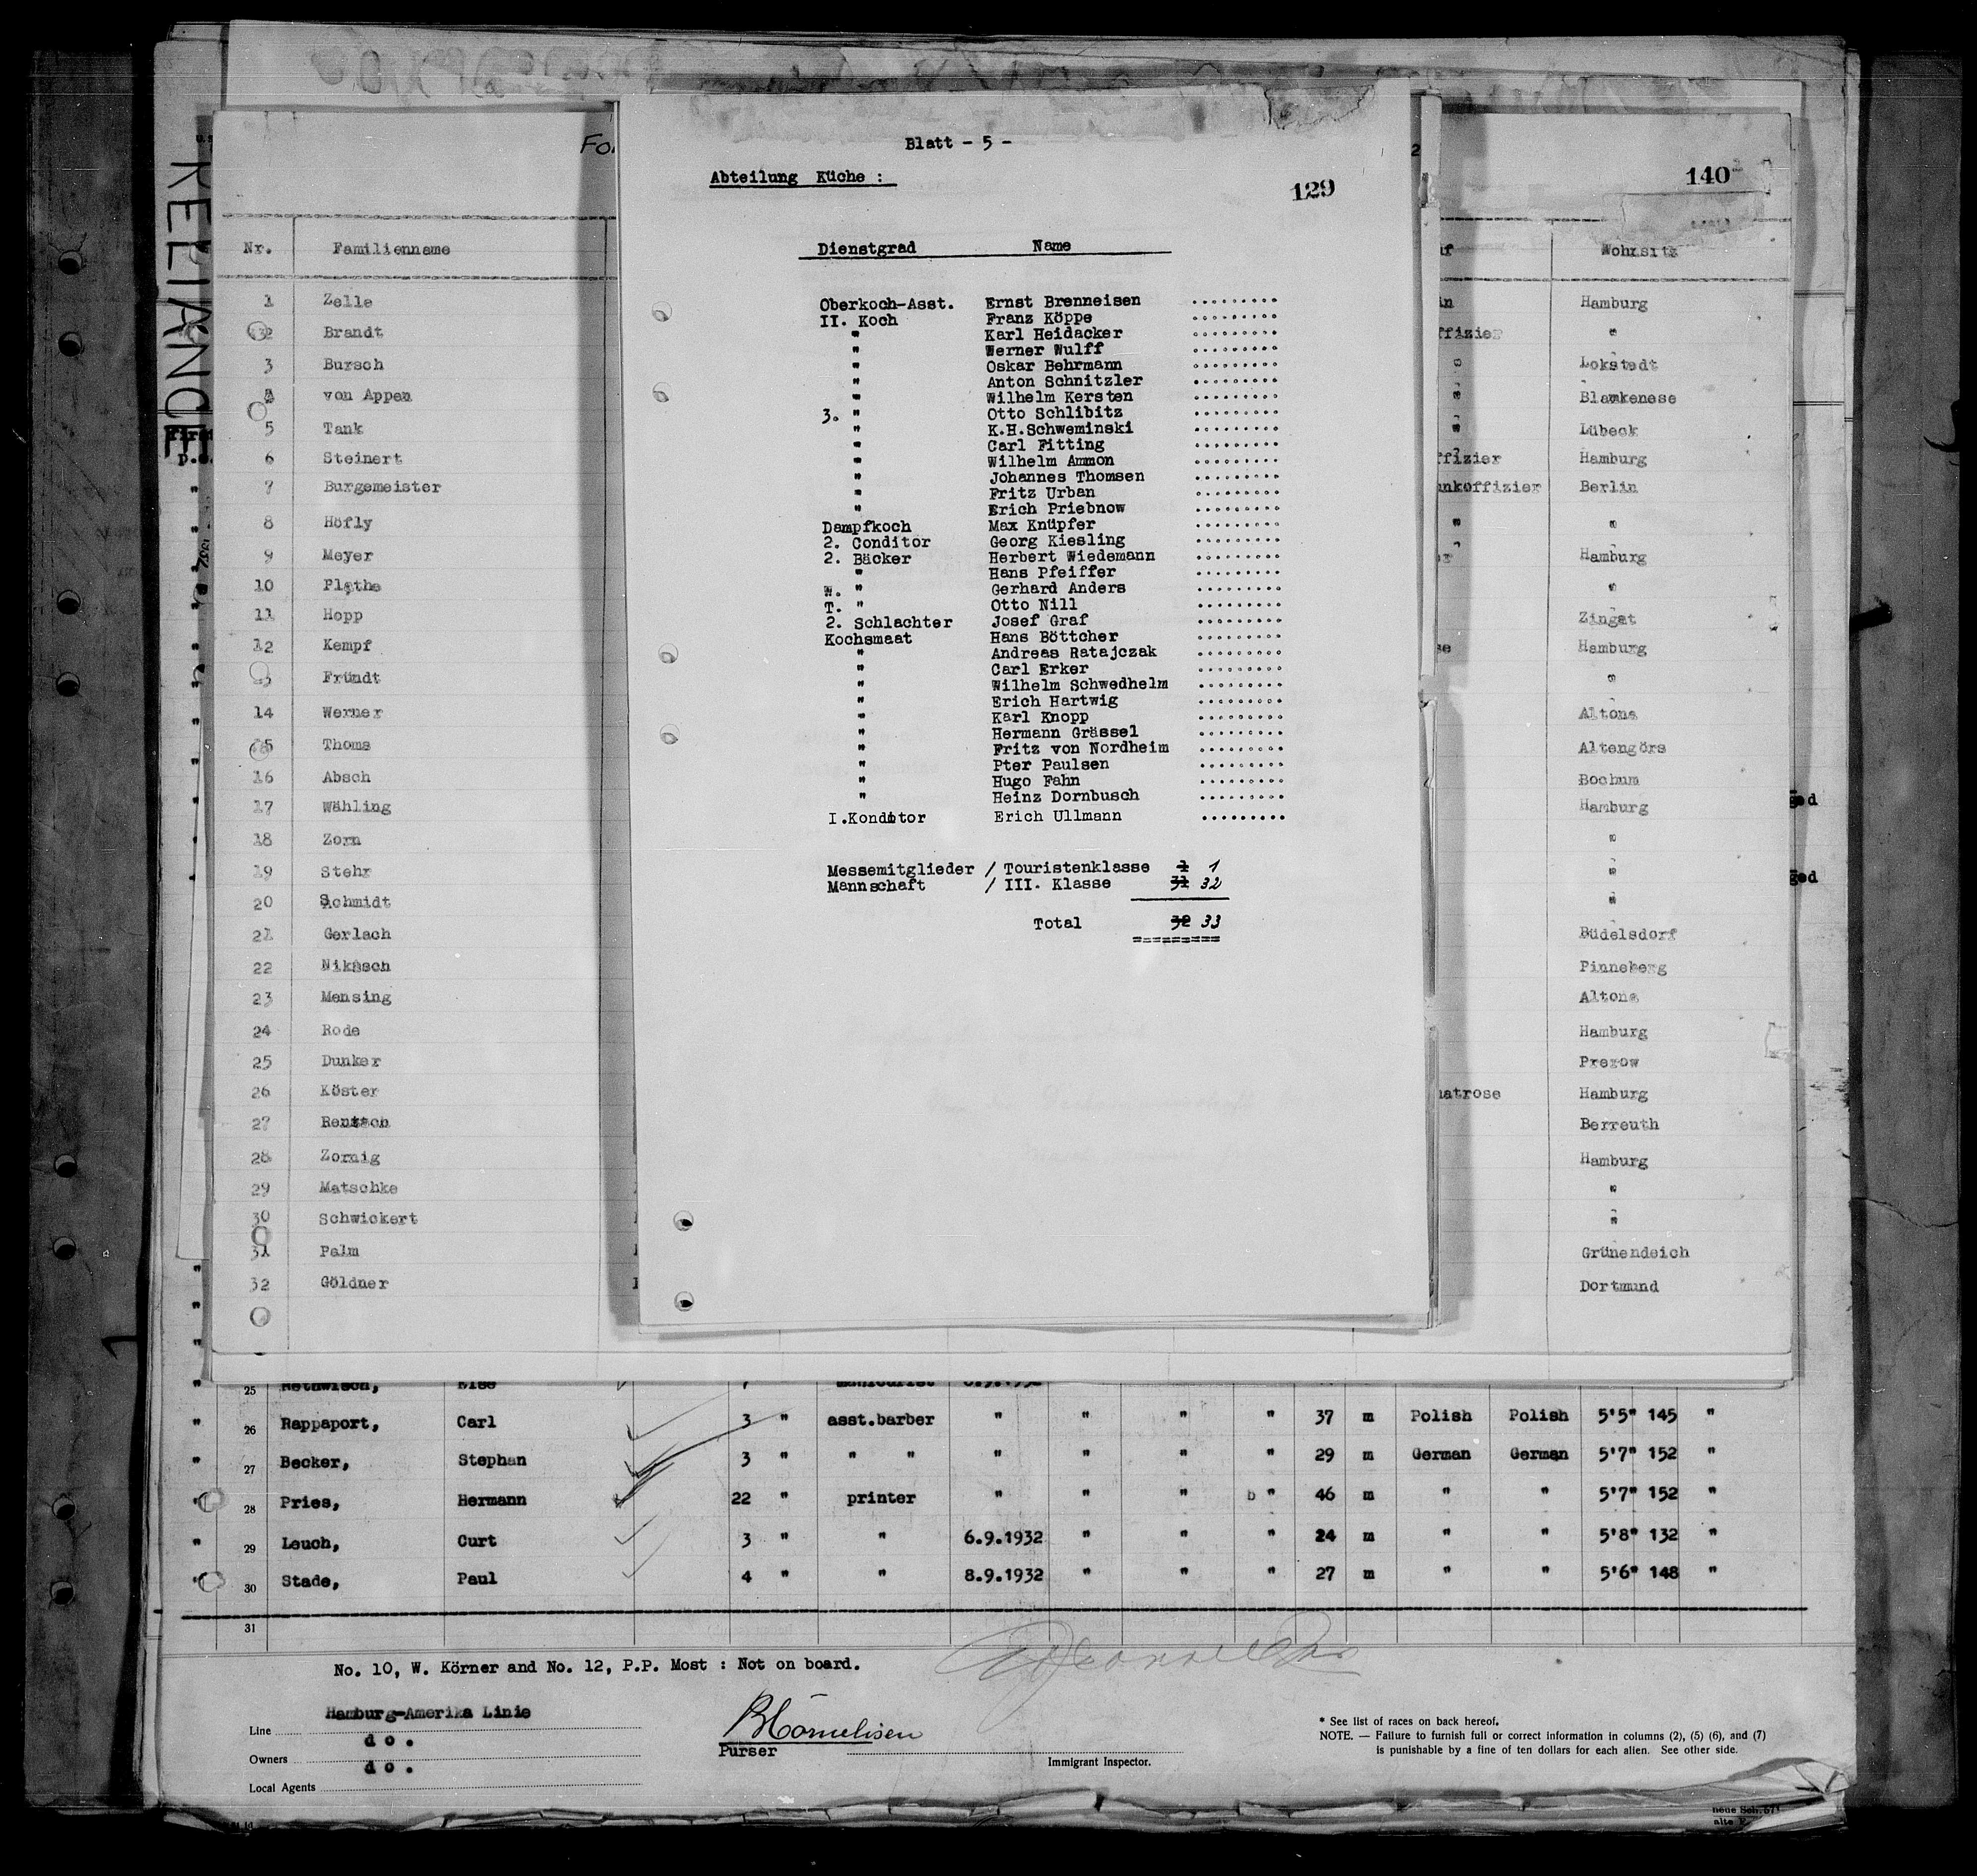 RELIANCE
Blatt - 5 -
Abteilung Küche :
129
Dienstgrad Name
Oberkoch-Asst. Ernst Brenneisen .........
II. Koch Franz Köppe .........
" Karl Heidacker .........
" Werner Wulff .........
" Oskar Behrmann .........
" Anton Schnitzler .........
" Wilhelm Kersten .........
3. " Otto Schlibitz .........
" K.H.Schweminski .........
" Carl Fitting .........
" Wilhelm Ammon .........
" Johannes Thomsen .........
" Fritz Urban .........
" Erich Priebnow .........
Dampfkoch Max Knüpfer .........
2. Conditor Georg Kiesling .........
2. Bäcker Herbert Wiedemann .........
" Hans Pfeiffer .........
W. " Gerhard Anders .........
T. " Otto Nill .........
2. Schlachter Josef Graf .........
Kochsmaat Hans Böttcher .........
" Andreas Ratajczak .........
" Carl Erker .........
" Wilhelm Schwedhelm .........
" Erich Hartwig .........
" Karl Knopp .........
" Hermann Grässel .........
" Fritz von Nordheim .........
" Pter Paulsen .........
" Hugo Fahn .........
" Heinz Dornbusch .........
I.Konditor Erich Ullmann .........
Messemitglieder / Touristenklasse 1
Mannschaft / III. Klasse 31 32
Total 32 33
140
Nr. Familienname Wohnsitz
1 Zelle Hamburg
2 Brandt "
3 Bursch Lokstedt
von Appen Blankenese
5 Tank Lübeck
6 Steinert ffizier Hamburg
7 Burgemeister nkoffizier Berlin
8 Höfly " "
9 Meyer Hamburg
10 Plathe "
11 Hopp Zingst
12 Kempf Hamburg
Fründt "
14 Werner Altona
15 Thoms Altengörs
16 Absch Bochum
17 Wähling Hamburg
18 Zorn "
19 Stehr "
20 Schmidt "
21 Gerlach Büdelsdorf
22 Nikäsch Pinneberg
23 Mensing Altona
24 Rode Hamburg
25 Dunker Prerow
26 Köster matrose Hamburg
27 Rentsch Berreuth
28 Zornig Hamburg
29 Matschke "
30 Schwickert "
31 Palm Grünendeich
32 Göldner Dortmund
" 25 Rethwisch, Else
" 26 Rappaport, Carl 3 " asst.barber " " " " 37 m Polish Polish 5'5" 145 "
" 27 Becker, Stephan 3 " " " " " " " 29 m German German 5'7" 152 "
" 28 Pries, Hermann 22 " printer " " " b " 46 m " " 5'7" 152 "
" 29 Leuch, Curt 3 " " 6.9.1932 " " " 24 m " " 5'8" 132 "
" 30 Stade, Paul 4 " " 8.9.1932 " " " 27 m " " 5'6" 148 "
31
No. 10, W. Körner and No. 12, P.P. Most : Not on board.
Line Hamburg-Amerika Linie
Owners d o .
Local Agents d o .
BCornelisen
Purser
Immigrant Inspector.
* See list of races on back hereof.
NOTE. — Failure to furnish full or correct information in columns (2), (5) (6), and (7)
is punishable by a fine of ten dollars for each alien. See other side.